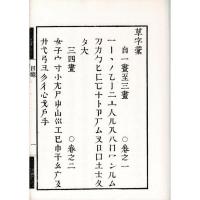 草字彙
自一畫至三畫 ○卷之一
一丨丶丿乙亅二亠人儿入八冂冖冫几凵
刀力勹匕匚匸十卜卩厂厶又口囗土士
夂大
三四畫 ○卷之二
女子宀寸小尢尸屮山巛工己巾干幺广廴
廾弋弓彐彡彳心戈戶
目錄
一